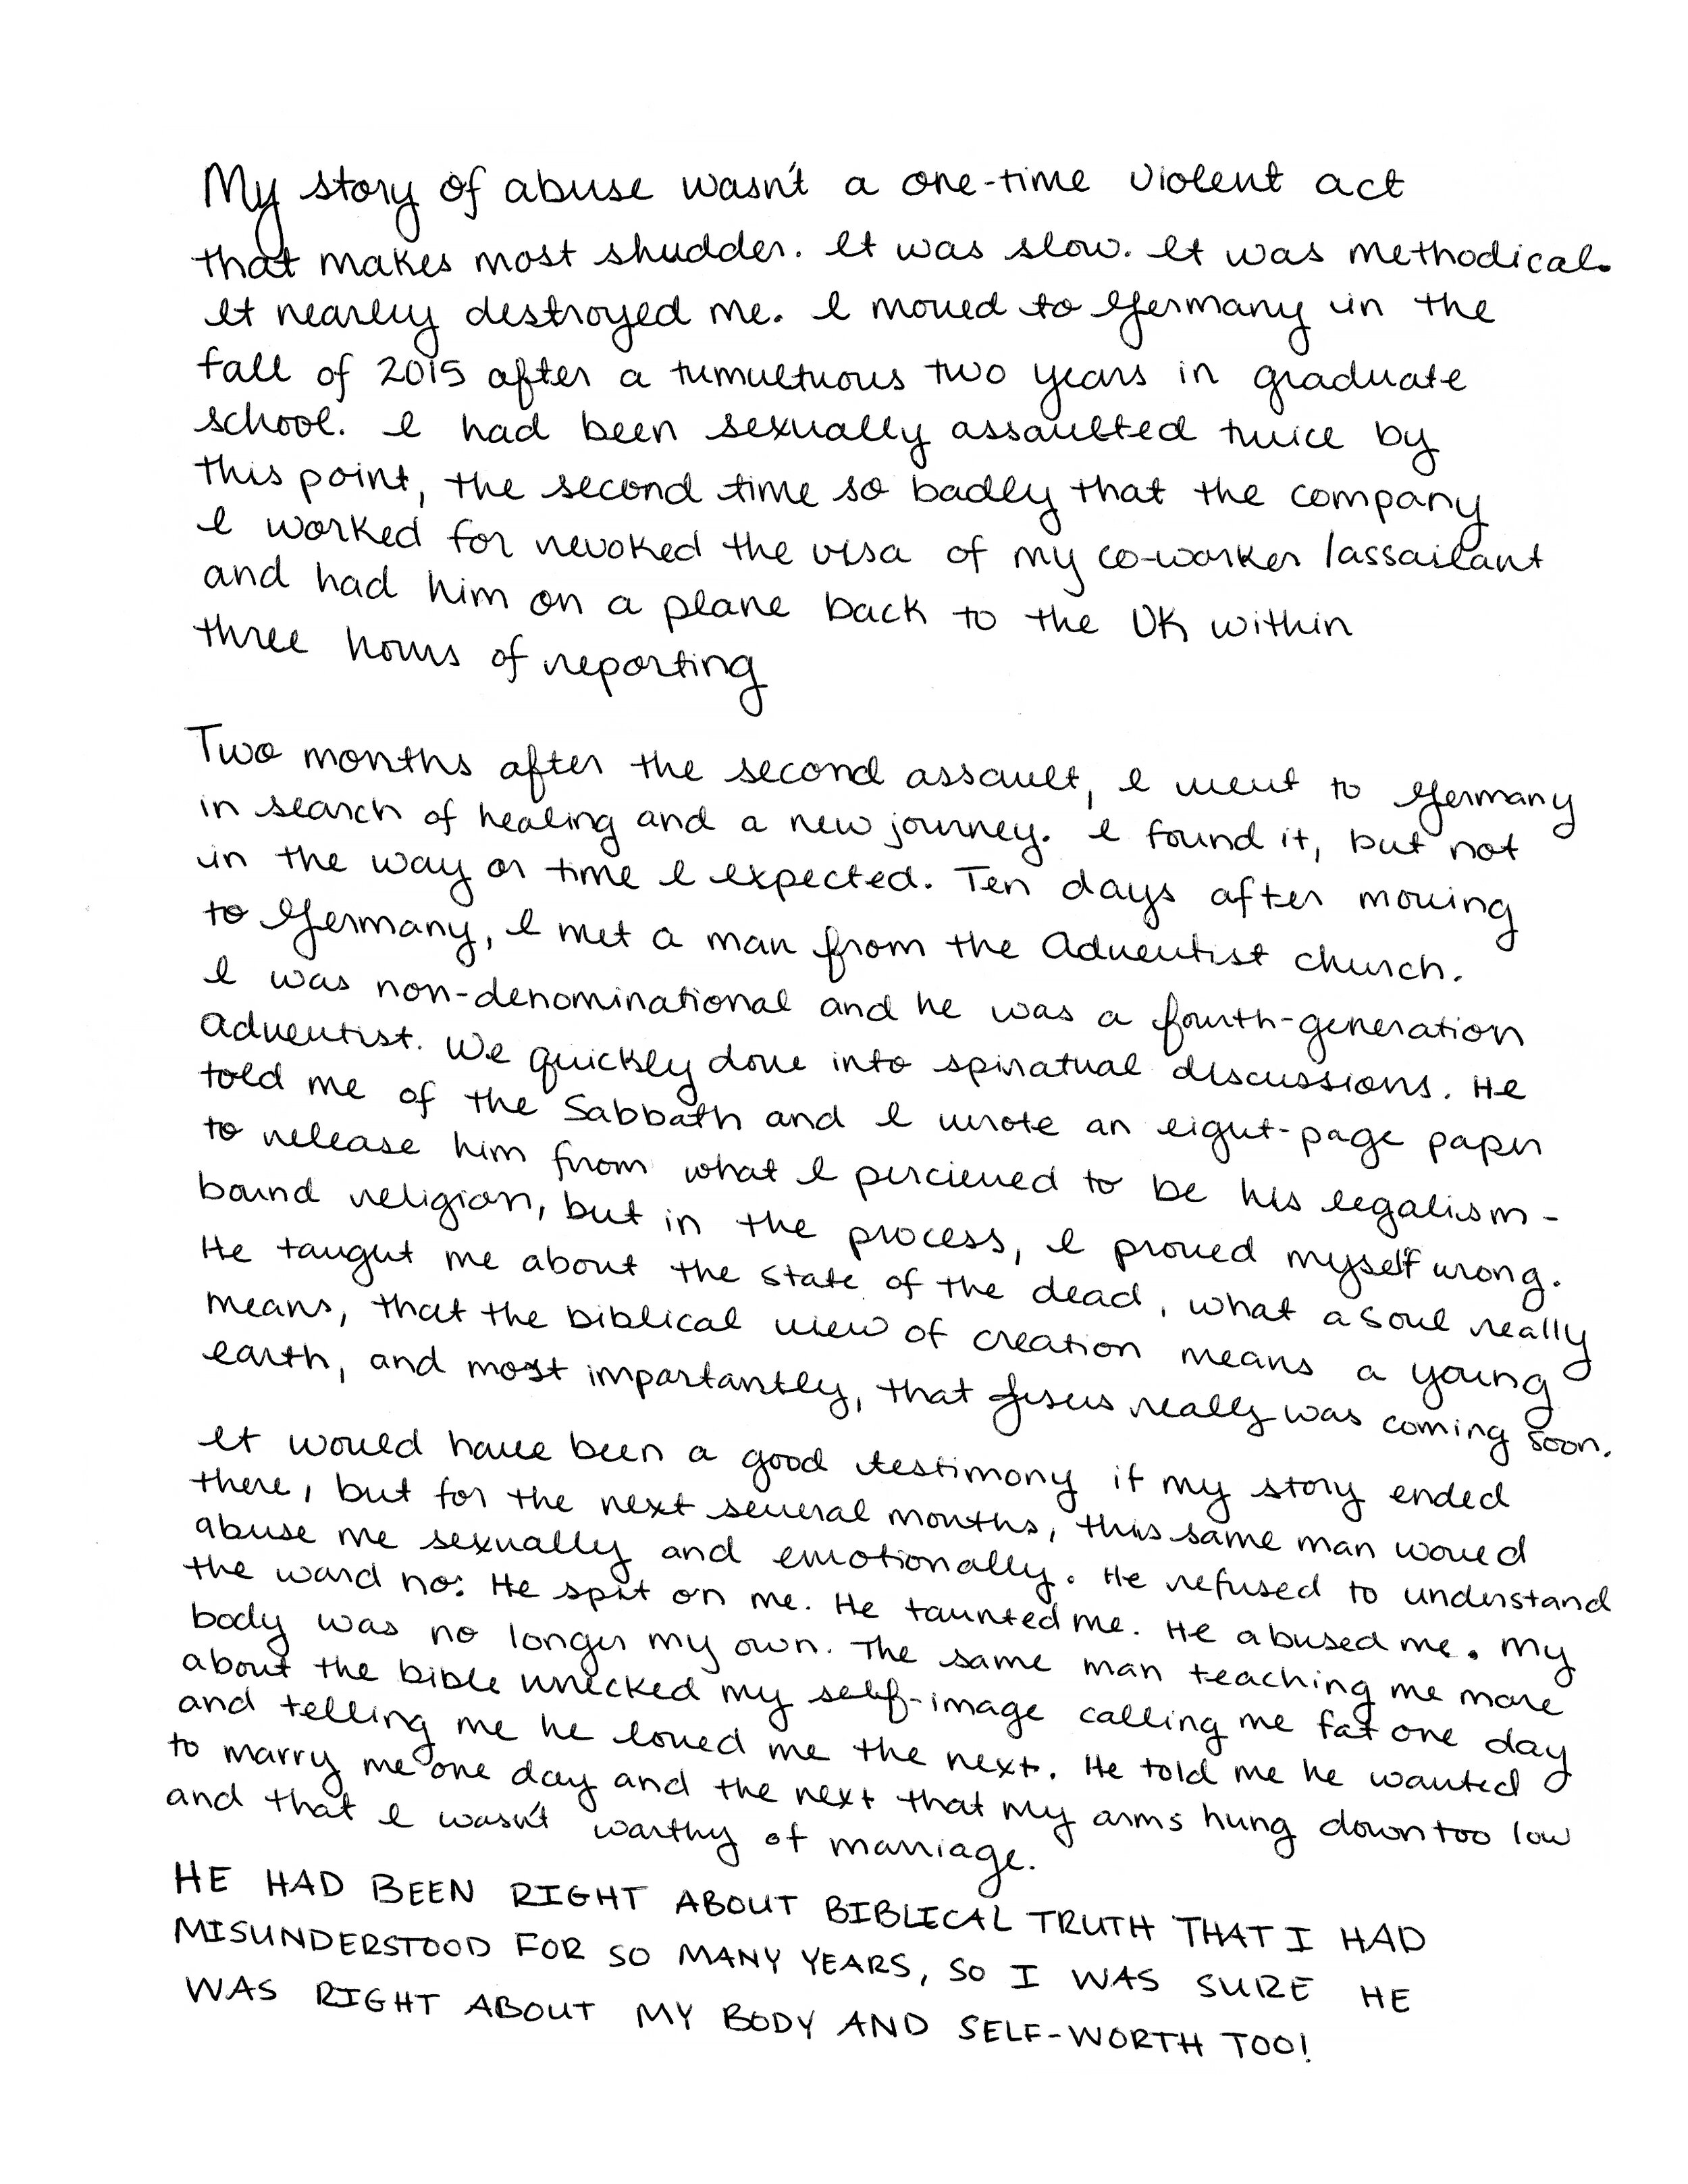 My story of abuse wasn't a one-time violent act
that makes most shudder. It was slow. It was methodical.
It nearly destroyed me. I moved to Germany in the
fall of 2015 after a tumultuous two years in graduate
school. I had been sexually assaulted twice by
this point, the second time so badly that the company
I worked for revoked the visa of my co-worker/assailant
and had him on a plane back to the UK within
three hours of reporting
Two months after the second assault, I went to Germany
in search of healing and a new journey. I found it, but not
in the way or time I expected. Ten days after moving
to Germany, I met a man from the Adventist church.
I was non-denominational and he was a fourth-generation
Adventist. We quickly dove into spiratual discussions. He
told me of the Sabbath and I wrote an eight-page paper
to release him from what I percieved to be his legalism-
bound religion, but in the process, I proved myself wrong.
He taught me about the state of the dead, what a soul really
means, that the biblical view of creation means a young
earth, and most importantly, that Jesus really was coming soon.
It would have been a good testimony if my story ended
there, but for the next several months, this same man would
abuse me sexually and emotionally. He refused to understand
the word no. He spit on me. He taunted me. He abused me. My
body was no longer my own. The same man teaching me more
about the bible wrecked my self-image calling me fat one day
and telling me he loved me the next. He told me he wanted
to marry me one day and the next that my arms hung down too low
and that I wasn't worthy of marriage.
HE HAD BEEN RIGHT ABOUT BIBLICAL TRUTH THAT I HAD
MISUNDERSTOOD FOR SO MANY YEARS, SO I WAS SURE HE
WAS RIGHT ABOUT MY BODY AND SELF-WORTH TOO!